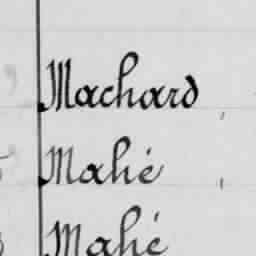 Machard
Mahé
Mahé